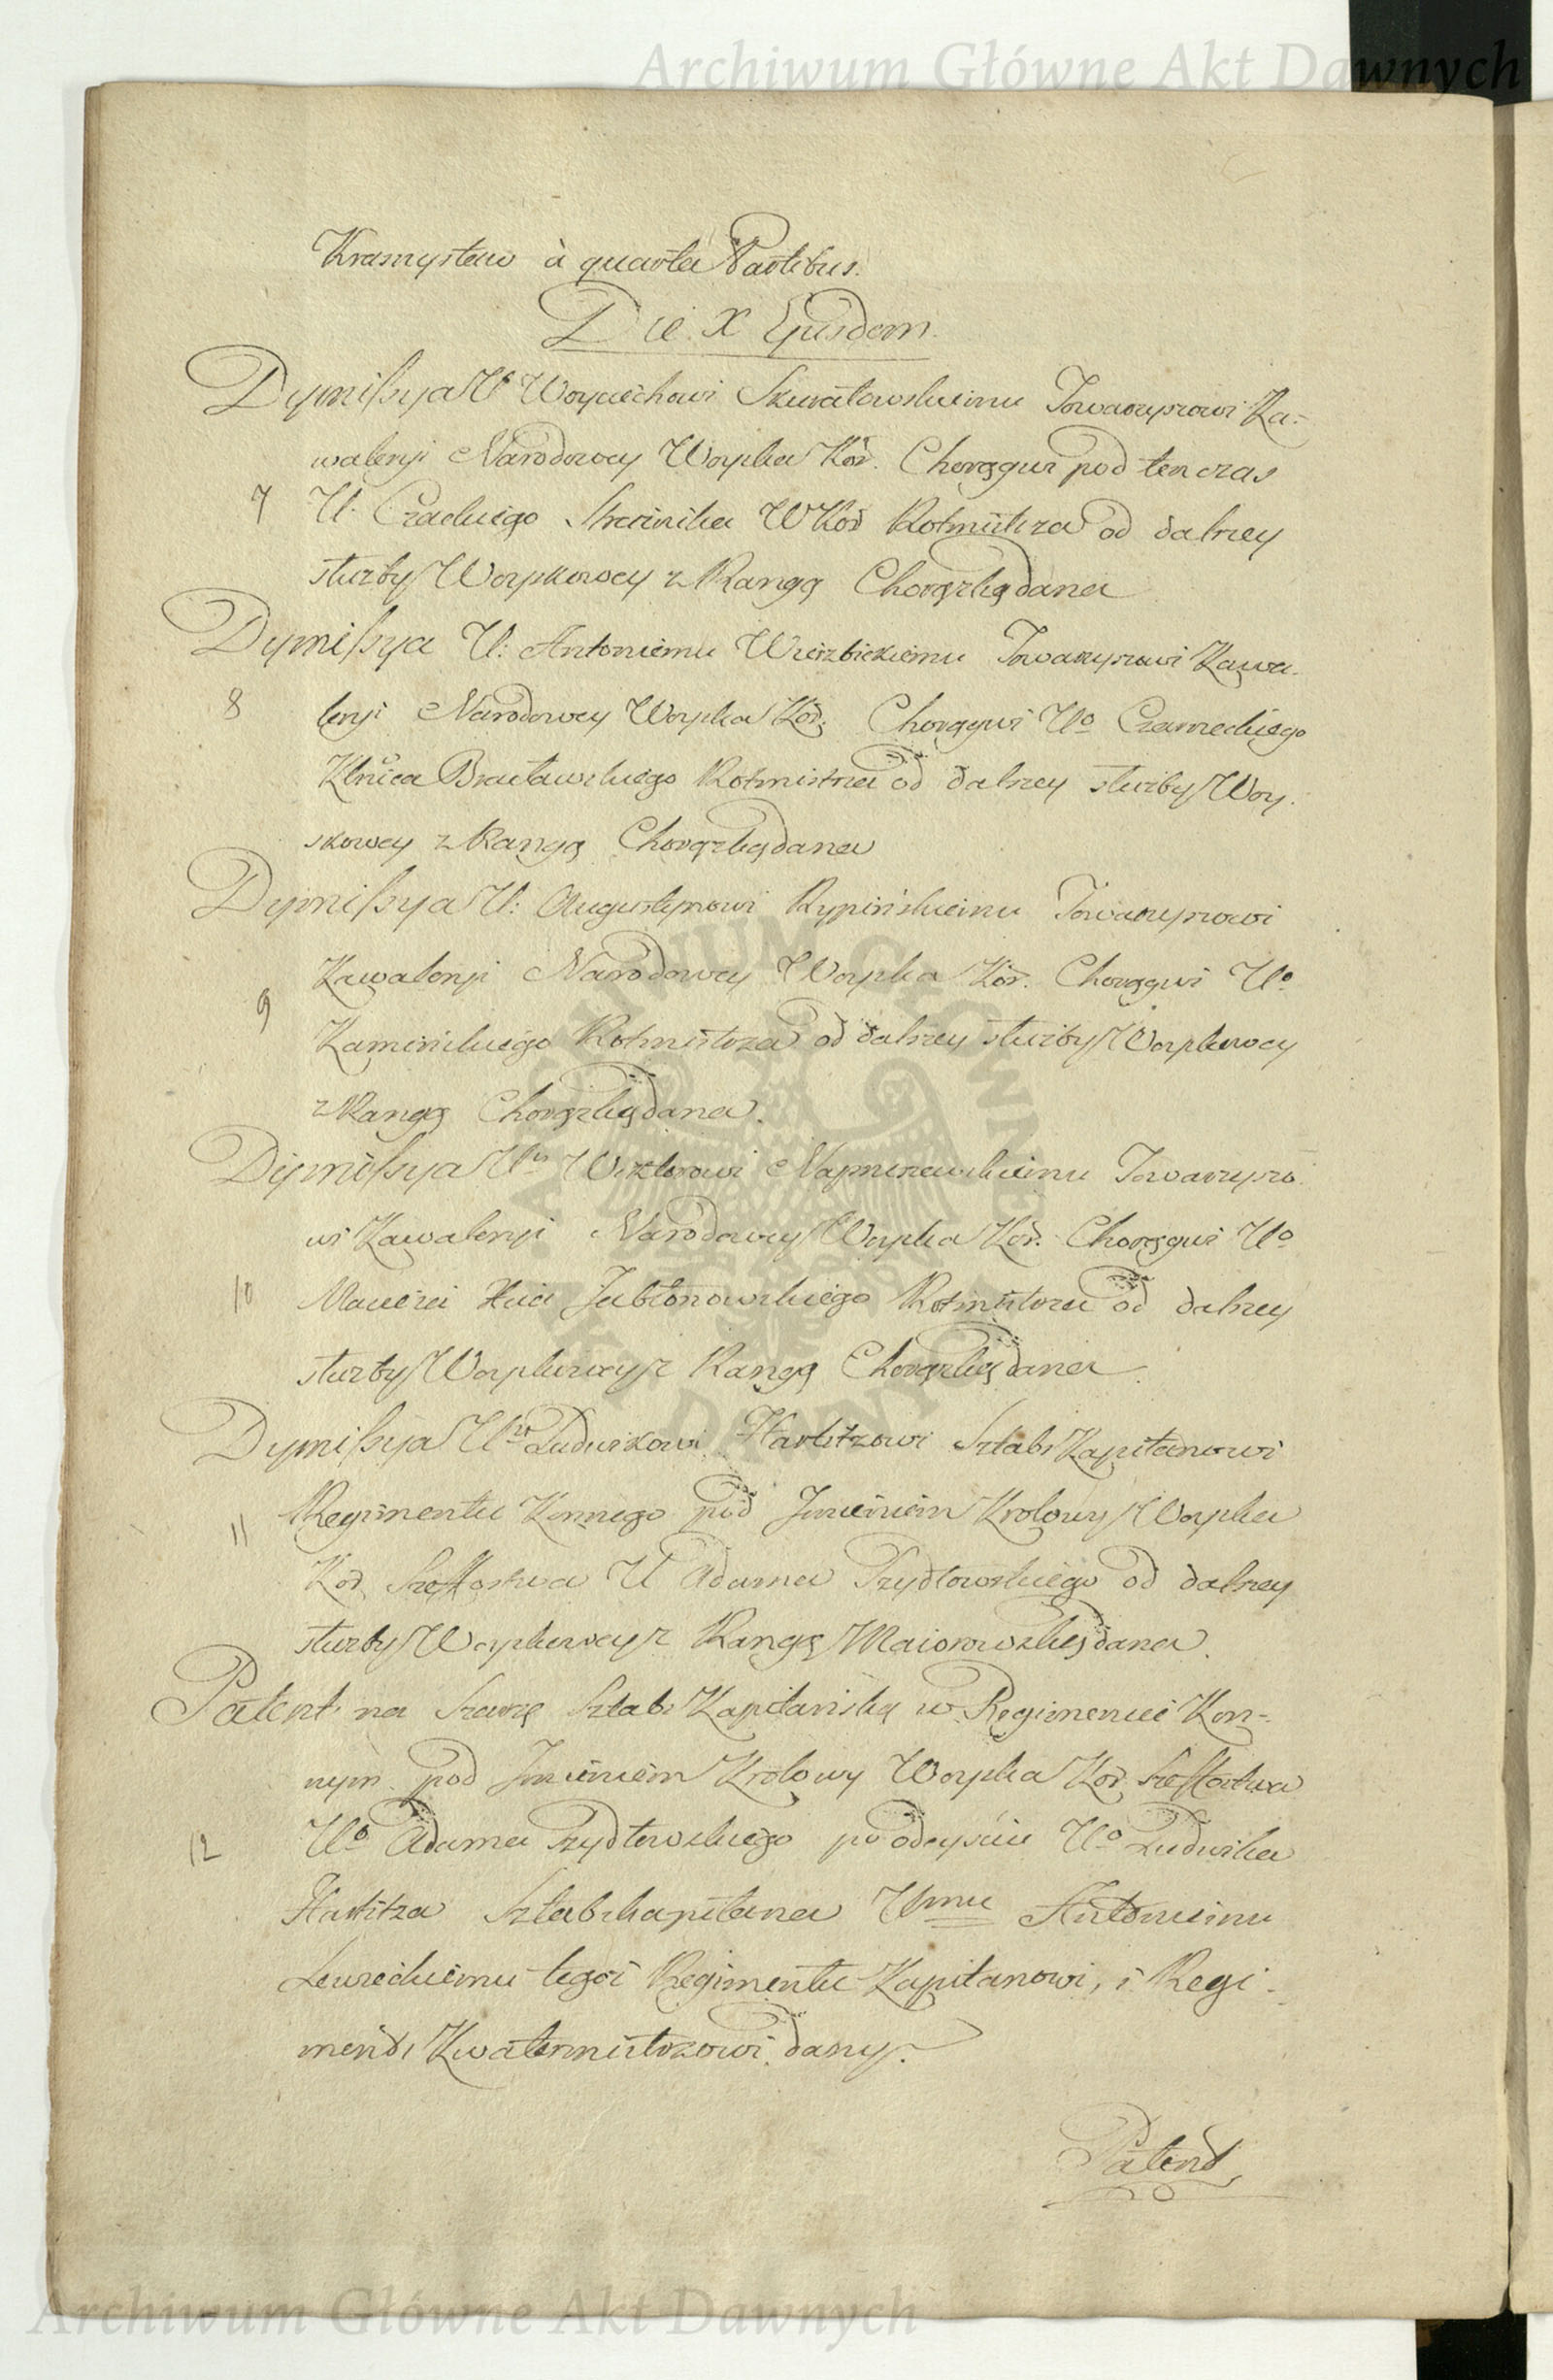 Archiwum Główne Akt Dawnych
Krasnystaw à quarta Partibus.
Die X Ejusdem.
Dymissya U° Woyciechowi Skuratowskiemu Towarzyszowi Ka-
waleryi Narodowey Woyska Kor. Chorągwi pod ten czas
7 U. Czackiego Strażnika W Kor Rotmistrza od dalszey
służby Woyskowey z Rangą Chorążską dana
Dymissya U: Antoniemu Wierzbickiemu Towarzyszowi Kawa-
8 leryi Narodowey Woyska Kor. Chorągwi U° Czarneckiego
Bracławskiego Rotmistrza od dalszey służby Woy-
skowey z Rangą Chorążską dana
Dymissya U: Augustynowi Rypińskiemu Towarzyszowi
Kawaleryi Narodowey Woyska Kor. Chorągwi U°
9 Kamińskiego Rotmistrza od dalszey służby Woyskowey
z Rangą Chorążską dana.
Dymissya Wiktorowi Towarzyszo-
wi Kawaleryi Narodowey Woyska Kor. Chorągwi U°
10 Macieia Jabłonowskiego Rotmistrza od dalszey
służby Woyskowey z Rangą Chorążską dana.
Dymissya Ludwikowi Hartitzowi Sztabs Kapitanowi
Regimentu Konnego pod Jmieniem Krolowy Woyska
11 Kor Szeffostwa U Adama Szydłowskiego od dalszey
służby Woyskowey z Rangą Maiorowską dana.
Patent na Szarżę Sztabs Kapitańską w Regimencie Kon-
nym pod Jmieniem Krolowy Woyska Kor Szeffostwa
12 U° Adama Szydłowskiego po odeyściu U° Ludwika
Hartitza Sztabskapitana Umu Antoniemu
tegoż Regimentu Kapitanowi, i Regi-
ments Kwatermistrzowi dany.
Patent
Archiwum Główne Akt Dawnych